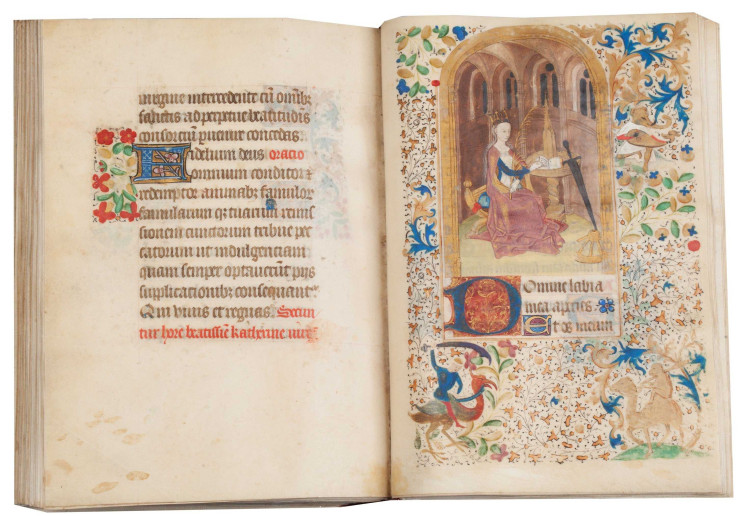 virgine intercedente cū omībꝫ
sāctis ad perpetue beatitudīs
consorciū puenire concedas.
Fidelium deus oratio
omnium conditor ⁊
redemptor animabꝫ famulor
famularum qꝫ tuarum remis
sionem cūctorum tribue pec
catorum ut indulgenciam
quam semper optauerūt pijs
supplicationibꝫ consequant
Qui viuis et regnas. Secun
tur hore beatissīe katherine virg
Domine labia
mea aperies.
Et os meum